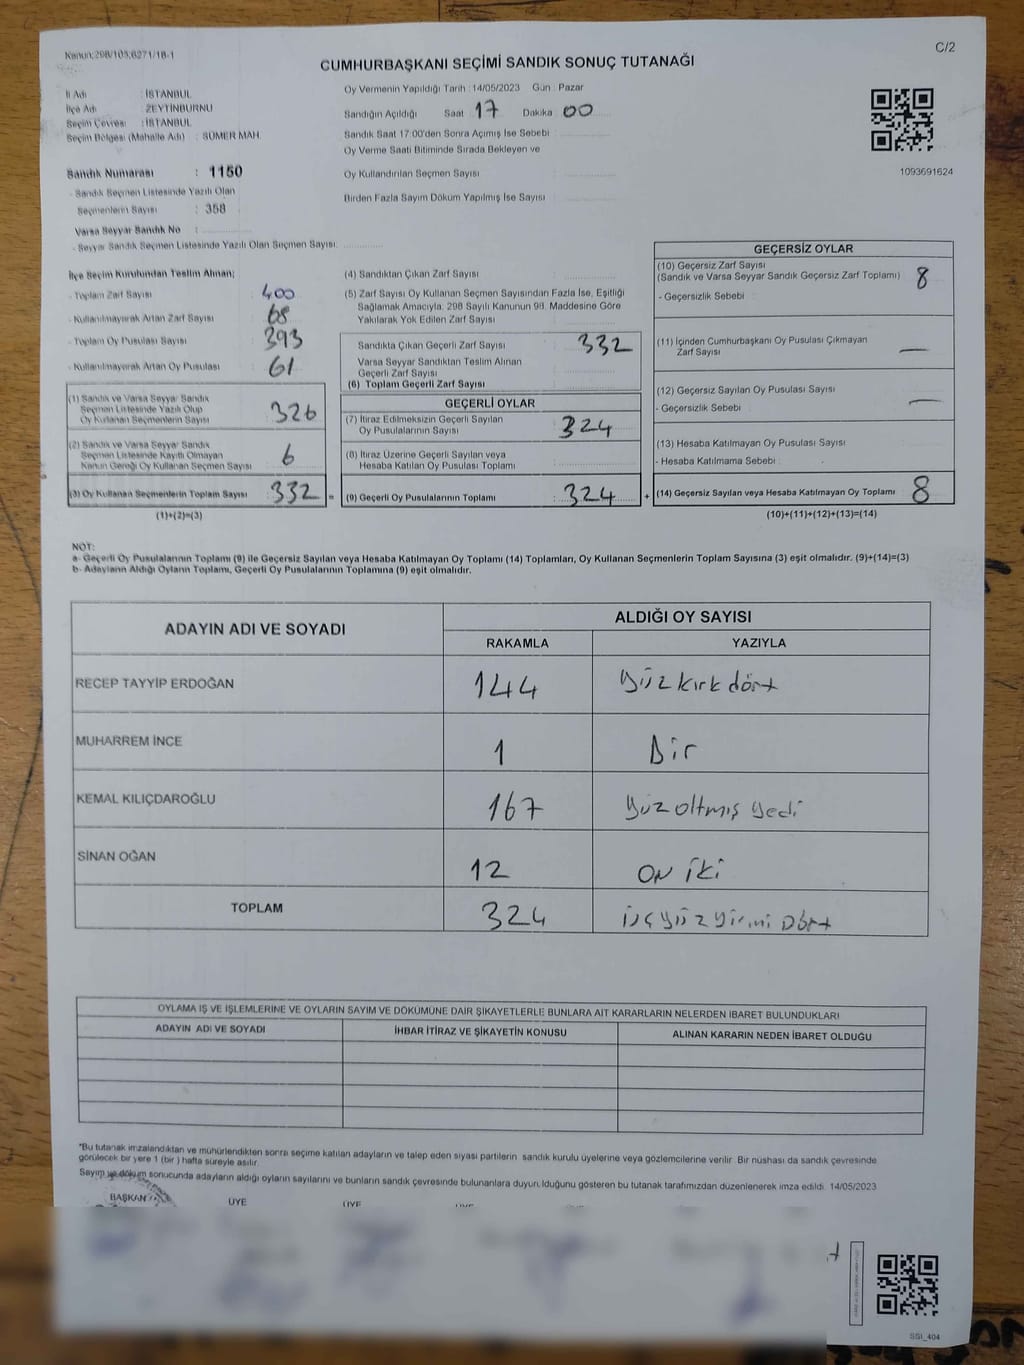 Kanun:298/103;6271/18-1
C/2
CUMHURBAŞKANI SEÇİMİ SANDIK SONUÇ TUTANAĞI
İl Adı : İSTANBUL
İlçe Adı : ZEYTİNBURNU
Seçim Çevresi : İSTANBUL
Seçim Bölgesi (Mahalle Adı) : SÜMER MAH.
Oy Vermenin Yapıldığı Tarih : 14/05/2023 Gün : Pazar
Sandığın Açıldığı Saat 17 Dakika 00
Sandık Saat 17:00'den Sonra Açımış İse Sebebi :
Oy Verme Saati Bitiminde Sırada Bekleyen ve
Oy Kullandırılan Seçmen Sayısı :
Birden Fazla Sayım Döküm Yapılmış İse Sayısı :
1093691624
Sandık Numarası : 1150
- Sandık Seçmen Listesinde Yazılı Olan
Seçmenlerin Sayısı : 358
Varsa Seyyar Sandık No :
- Seyyar Sandık Seçmen Listesinde Yazılı Olan Seçmen Sayısı:
İlçe Seçim Kurulundan Teslim Alınan;
- Toplam Zarf Sayısı : 400
- Kullanılmayarak Artan Zarf Sayısı : 68
- Toplam Oy Pusulası Sayısı : 393
- Kullanılmayarak Artan Oy Pusulası : 61
(1) Sandık ve Varsa Seyyar Sandık
Seçmen Listesinde Yazılı Olup
Oy Kullanan Seçmenlerin Sayısı : 326
(2) Sandık ve Varsa Seyyar Sandık
Seçmen Listesinde Kayıtlı Olmayan
Kanun Gereği Oy Kullanan Seçmen Sayısı : 6
(3) Oy Kullanan Seçmenlerin Toplam Sayısı : 332 =
(1)+(2)=(3)
(4) Sandıktan Çıkan Zarf Sayısı :
(5) Zarf Sayısı Oy Kullanan Seçmen Sayısından Fazla İse, Eşitliği
Sağlamak Amacıyla; 298 Sayılı Kanunun 98. Maddesine Göre
Yakılarak Yok Edilen Zarf Sayısı :
Sandıkta Çıkan Geçerli Zarf Sayısı : 332
Varsa Seyyar Sandıktan Teslim Alınan
Geçerli Zarf Sayısı :
(6) Toplam Geçerli Zarf Sayısı :
GEÇERLİ OYLAR
(7) İtiraz Edilmeksizin Geçerli Sayılan
Oy Pusulalarının Sayısı : 324
(8) İtiraz Üzerine Geçerli Sayılan veya
Hesaba Katılan Oy Pusulası Toplamı :
(9) Geçerli Oy Pusulalarının Toplamı : 324 +
GEÇERSİZ OYLAR
(10) Geçersiz Zarf Sayısı
(Sandık ve Varsa Seyyar Sandık Geçersiz Zarf Toplamı) : 8
- Geçersizlik Sebebi :
(11) İçinden Cumhurbaşkanı Oy Pusulası Çıkmayan
Zarf Sayısı : —
(12) Geçersiz Sayılan Oy Pusulası Sayısı : —
- Geçersizlik Sebebi :
(13) Hesaba Katılmayan Oy Pusulası Sayısı :
- Hesaba Katılmama Sebebi :
(14) Geçersiz Sayılan veya Hesaba Katılmayan Oy Toplamı : 8
(10)+(11)+(12)+(13)=(14)
NOT:
a- Geçerli Oy Pusulalarının Toplamı (9) ile Geçersiz Sayılan veya Hesaba Katılmayan Oy Toplamı (14) Toplamları, Oy Kullanan Seçmenlerin Toplam Sayısına (3) eşit olmalıdır. (9)+(14)=(3)
b- Adayların Aldığı Oyların Toplamı, Geçerli Oy Pusulalarının Toplamına (9) eşit olmalıdır.
ADAYIN ADI VE SOYADI
ALDIĞI OY SAYISI
RAKAMLA YAZIYLA
RECEP TAYYİP ERDOĞAN 144 yüz kırk dört
MUHARREM İNCE 1 Bir
KEMAL KILIÇDAROĞLU 167 yüz altmış yedi
SİNAN OĞAN 12 ON İKİ
TOPLAM 324 üç yüz yirmi Dört
OYLAMA İŞ VE İŞLEMLERİNE VE OYLARIN SAYIM VE DÖKÜMÜNE DAİR ŞİKAYETLERLE BUNLARA AİT KARARLARIN NELERDEN İBARET BULUNDUKLARI
ADAYIN ADI VE SOYADI İHBAR İTİRAZ VE ŞİKAYETİN KONUSU ALINAN KARARIN NEDEN İBARET OLDUĞU
*Bu tutanak imzalandıktan ve mühürlendikten sonra seçime katılan adayların ve talep eden siyasi partilerin sandık kurulu üyelerine veya gözlemcilerine verilir. Bir nüshası da sandık çevresinde
görülecek bir yere 1 (bir ) hafta süreyle asılır.
Sayım ve döküm sonucunda adayların aldığı oyların sayılarını ve bunların sandık çevresinde bulunanlara duyurulduğunu gösteren bu tutanak tarafımızdan düzenlenerek imza edildi. 14/05/2023
BAŞKAN ÜYE ÜYE ÜYE
SSİ_404